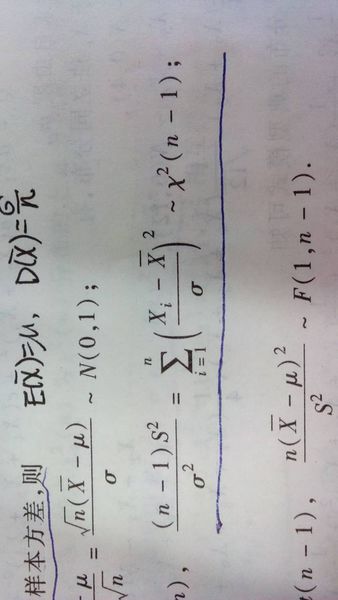 样本方差,则 E(X̄)=μ, D(X̄)=σ/n
μ/√n = √n(X̄ − μ)/σ ~ N(0,1);
(n − 1)S²/σ² = ∑ᵢ₌₁ⁿ ((Xᵢ − X̄)/σ)² ~ χ²(n − 1);
(n − 1), n(X̄ − μ)²/S² ~ F(1,n − 1).